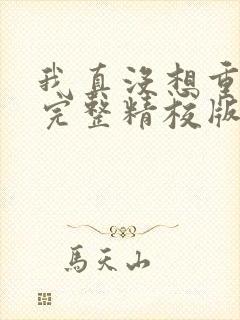 我真没想重
完整精校版
馬天山